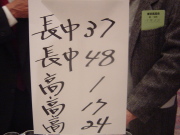 長中37
長中48
高1
高17
高24